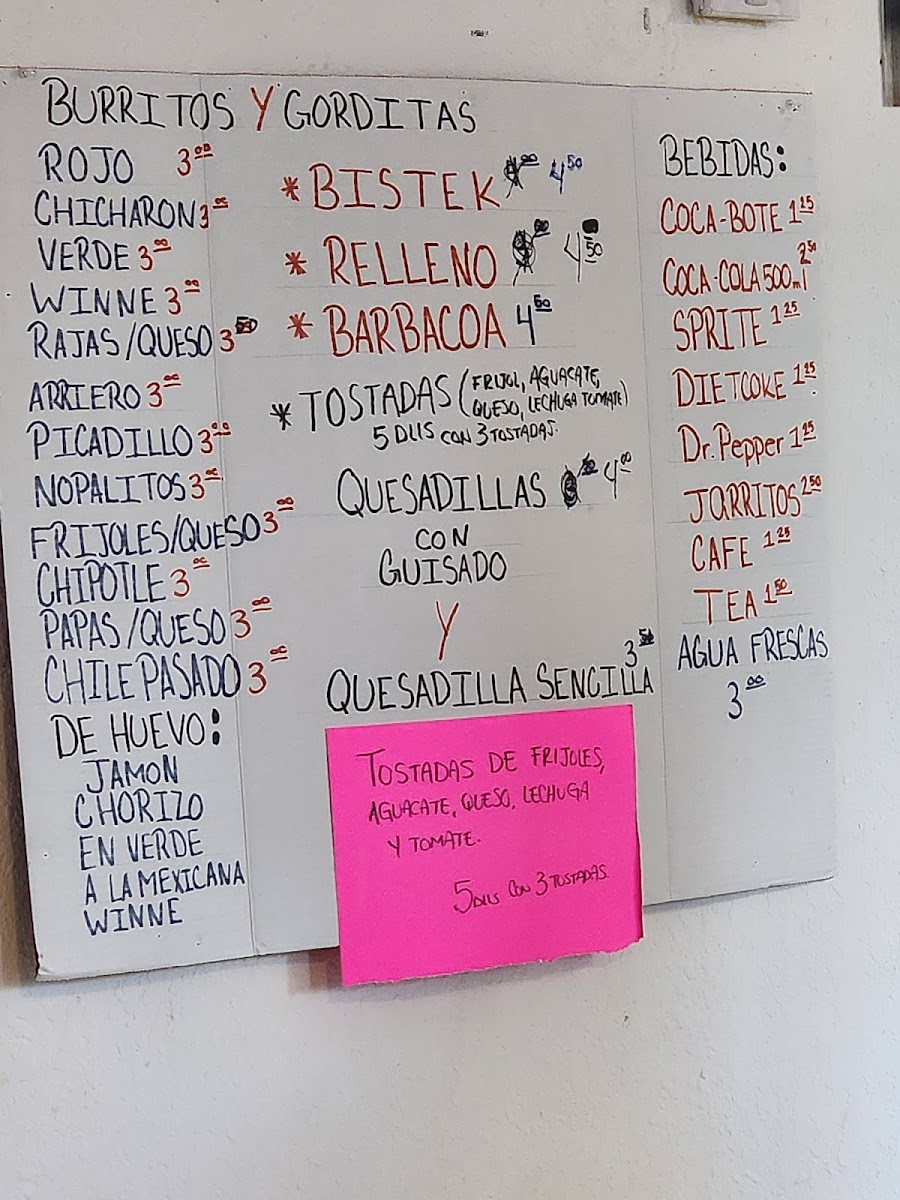 BURRITOS Y GORDITAS
ROJO 3.00
CHICHARON 3.00
VERDE 3.00
WINNE 3.00
RAJAS/QUESO 3.50
ARRIERO 3.00
PICADILLO 3.00
NOPALITOS 3.00
FRIJOLES/QUESO 3.00
CHIPOTLE 3.00
PAPAS/QUESO 3.00
CHILE PASADO 3.00
DE HUEVO:
JAMON
CHORIZO
EN VERDE
A LA MEXICANA
WINNE
* BISTEK 4.50
* RELLENO 4.50
* BARBACOA 4.50
* TOSTADAS (FRIJOL, AGUACATE,
QUESO, LECHUGA TOMATE)
5 DLLS CON 3 TOSTADAS.
QUESADILLAS 4.00
CON
GUISADO
Y
QUESADILLA SENCILLA 3.50
TOSTADAS DE FRIJOLES,
AGUACATE, QUESO, LECHUGA
Y TOMATE.
5 DLLS CON 3 TOSTADAS.
BEBIDAS:
COCA-BOTE 1.25
COCA-COLA 500ml 2.50
SPRITE 1.25
DIET COKE 1.25
Dr. Pepper 1.25
JARRITOS 2.50
CAFE 1.25
TEA 1.50
AGUA FRESCAS
3.00